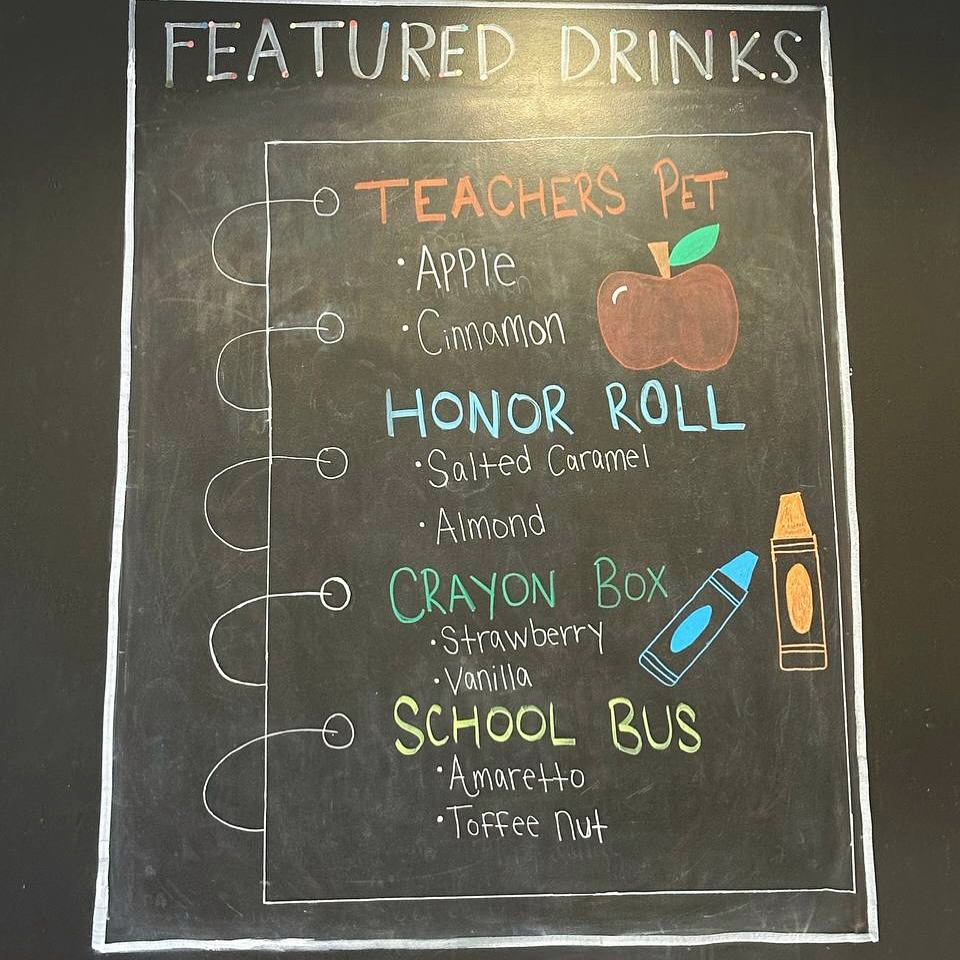 FEATURED DRINKS
TEACHERS PET
• Apple
• Cinnamon
HONOR ROLL
• Salted Caramel
• Almond
CRAYON BOX
• Strawberry
• Vanilla
SCHOOL BUS
• Amaretto
• Toffee nut